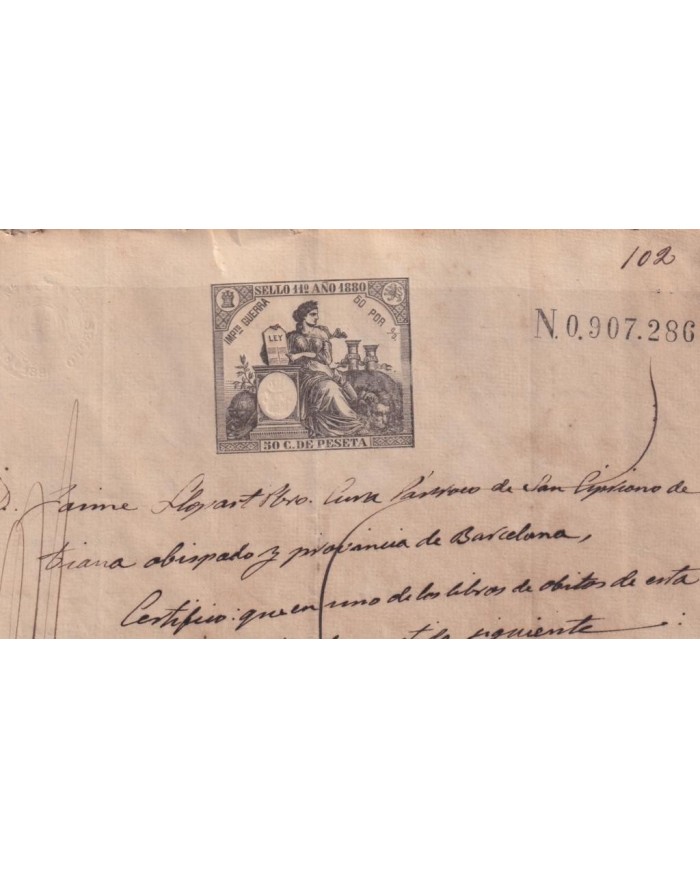 102
SELLO 11º AÑO 1880
IMPTO GUERRA 50 POR %
LEY
N.0,907.286
50 C. DE PESETA
D. Jaime Llopart Pbro. Cura Párroco de San Cipriano de
Tiana obispado y provincia de Barcelona,
Certifico: que en uno de los libros de obitos de esta
siguiente